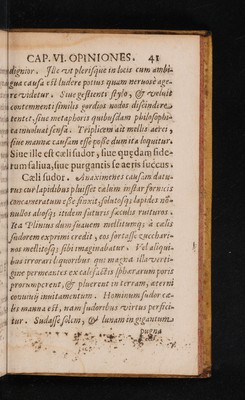 CAP. VI. OPINIONES. 41
dignior. Ille vt plerisque in locis cum ambi-
gua causa est ludere potius quam neruosè age-
re videtur. Siue gestienti stylo, & veluit
contemnenti similis gordios nodos discindere
tentet. siue metaphoris quibusdam philosophi-
ca inuoluat sensa. Triplicem ait mellis aerei,
siue mannæ causam esse posse dum ita loquitur.
Siue ille est cæli sudor, siue quædam side-
rum saliua, siue purgantis se aeris succus.
Cæli sudor. Anaximenes causam datu-
rus cur lapidibus pluisset cælum instar fornicis
concameratum esse finxit, solutosq; lapides nõ-
nullos abesq; itidem futuris sæculis ruituros.
Ita Plinius dum suauem mellitumq; à cælis
sudorem exprimi credit, eos fortasse zuccbari-
nos mellitosq; sibi imaginabatur. Vel aliqui-
bus irrorari liquoribus qui magna illa verti-
gine permeantes ex calefactis sphærarum poris
prorumperent, & pluerent in terram, aterni
conuiuij inuitamentum. Hominum sudor cæ-
lis manna est, nam sudoribus virtus perfici-
tur. Sudasse solem, & lunam in gigantum
pugna